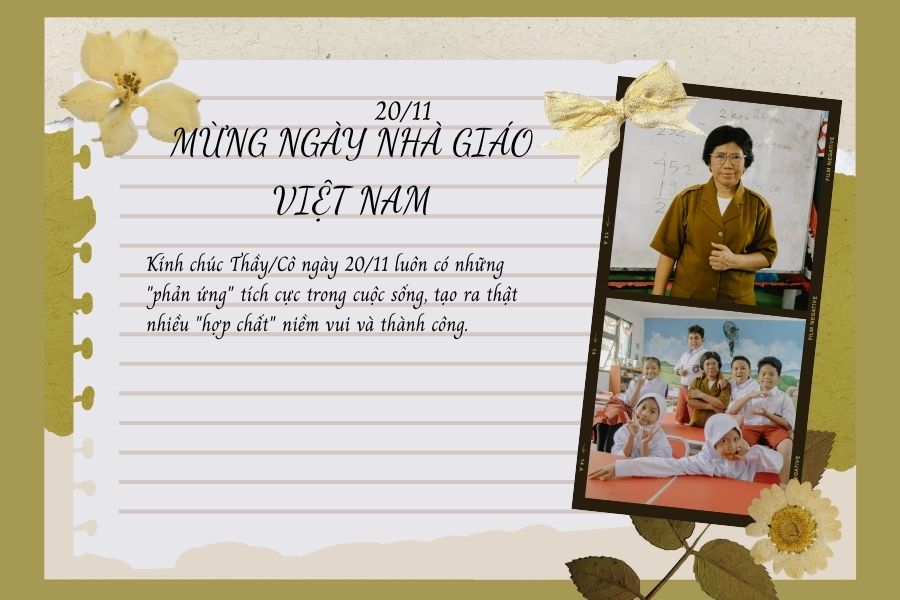 20/11
MỪNG NGÀY NHÀ GIÁO
VIỆT NAM
Kính chúc Thầy/Cô ngày 20/11 luôn có những
"phản ứng" tích cực trong cuộc sống, tạo ra thật
nhiều "hợp chất" niềm vui và thành công.
FILM NEGATIVE
FILM NEGATIVE
452